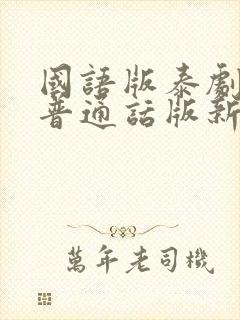 國語版泰劇
普通話版新
萬年老司機